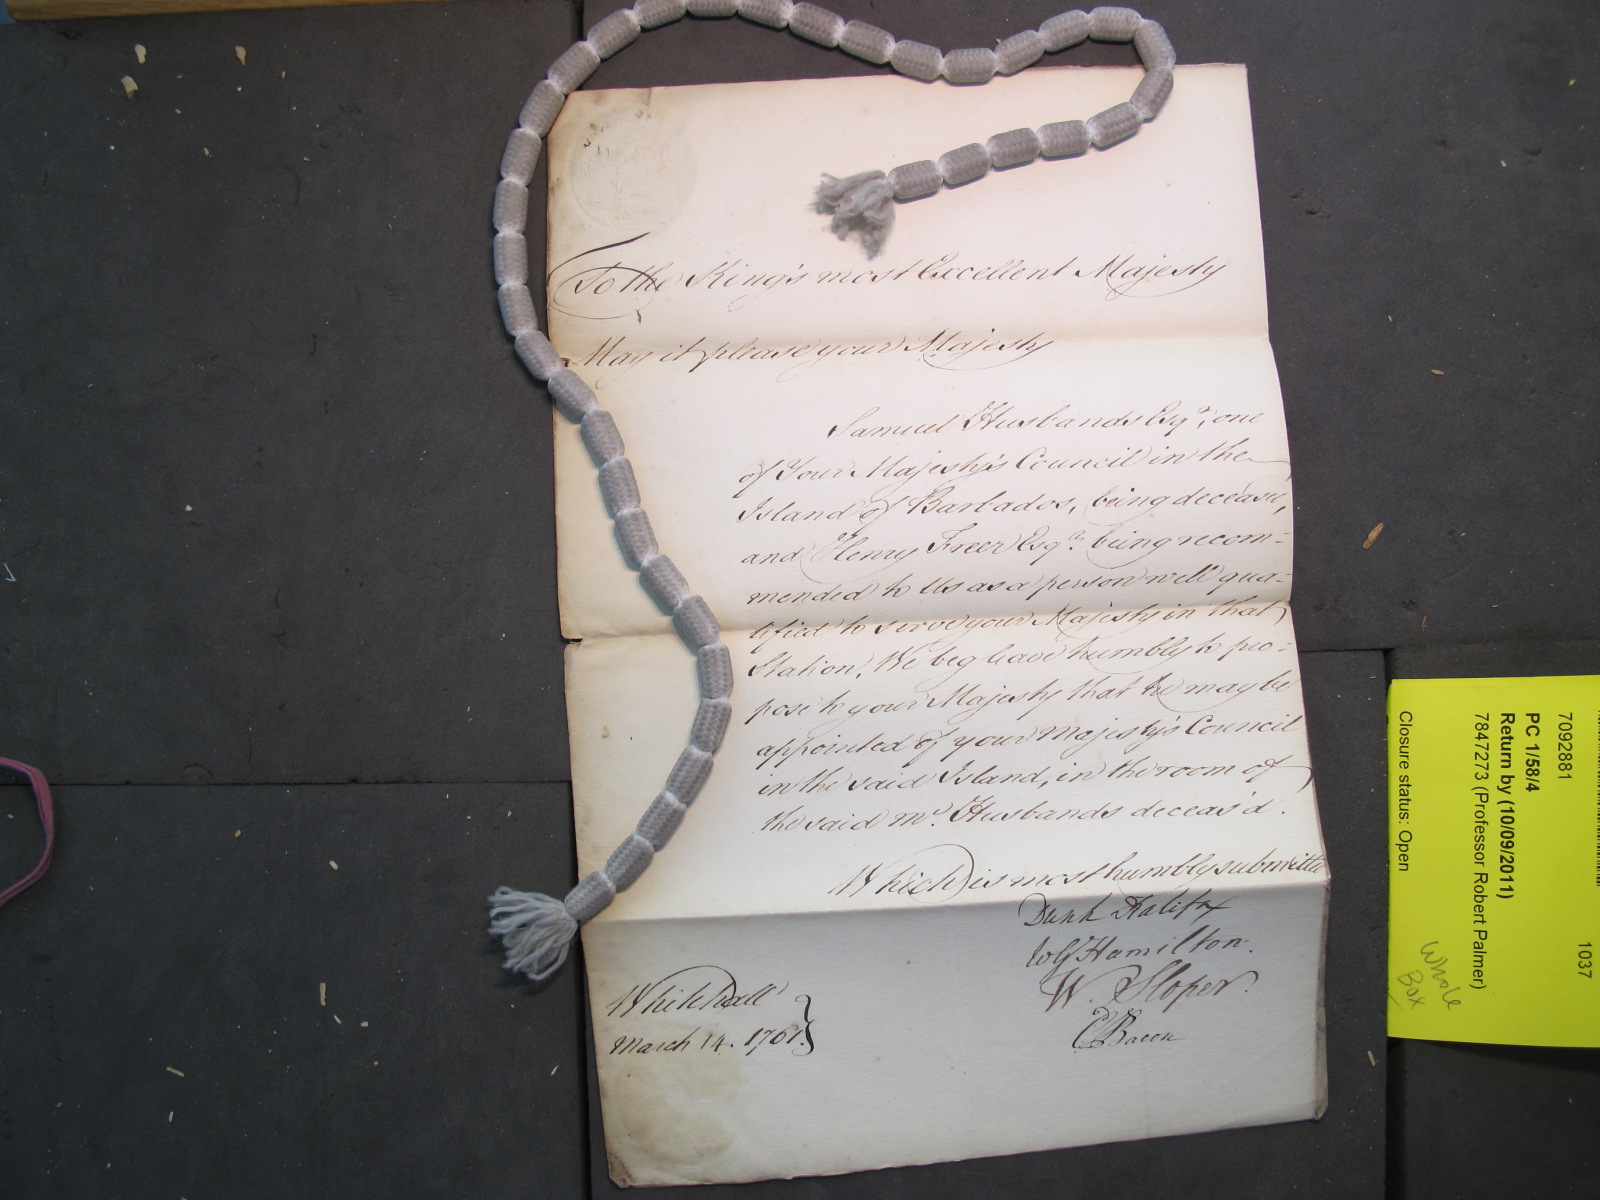 To the King's most Excellent Majesty
May it please your Majesty
Samuel Husbands Esqr, one
of Your Majesty's Council in the
Island of Barbados, being deceas'd,
and Henry Freer Esqr. being recom=
mended to Us as a person well qua=
lified to serve your Majesty in that
Station, We beg leave humbly to pro=
pose to your Majesty that he may be
appointed of your Majesty's Council
in the said Island, in the room of
the said Mr. Husbands deceas'd.
Which is most humbly submitted
Dunk Halifax
W. G. Hamilton.
W. Sloper.
E Bacon
Whitehall
March 14. 1761.
7092881
1037
PC 1/58/4
Return by (10/09/2011)
7847273 (Professor Robert Palmer)
Closure status: Open
Whole
Box